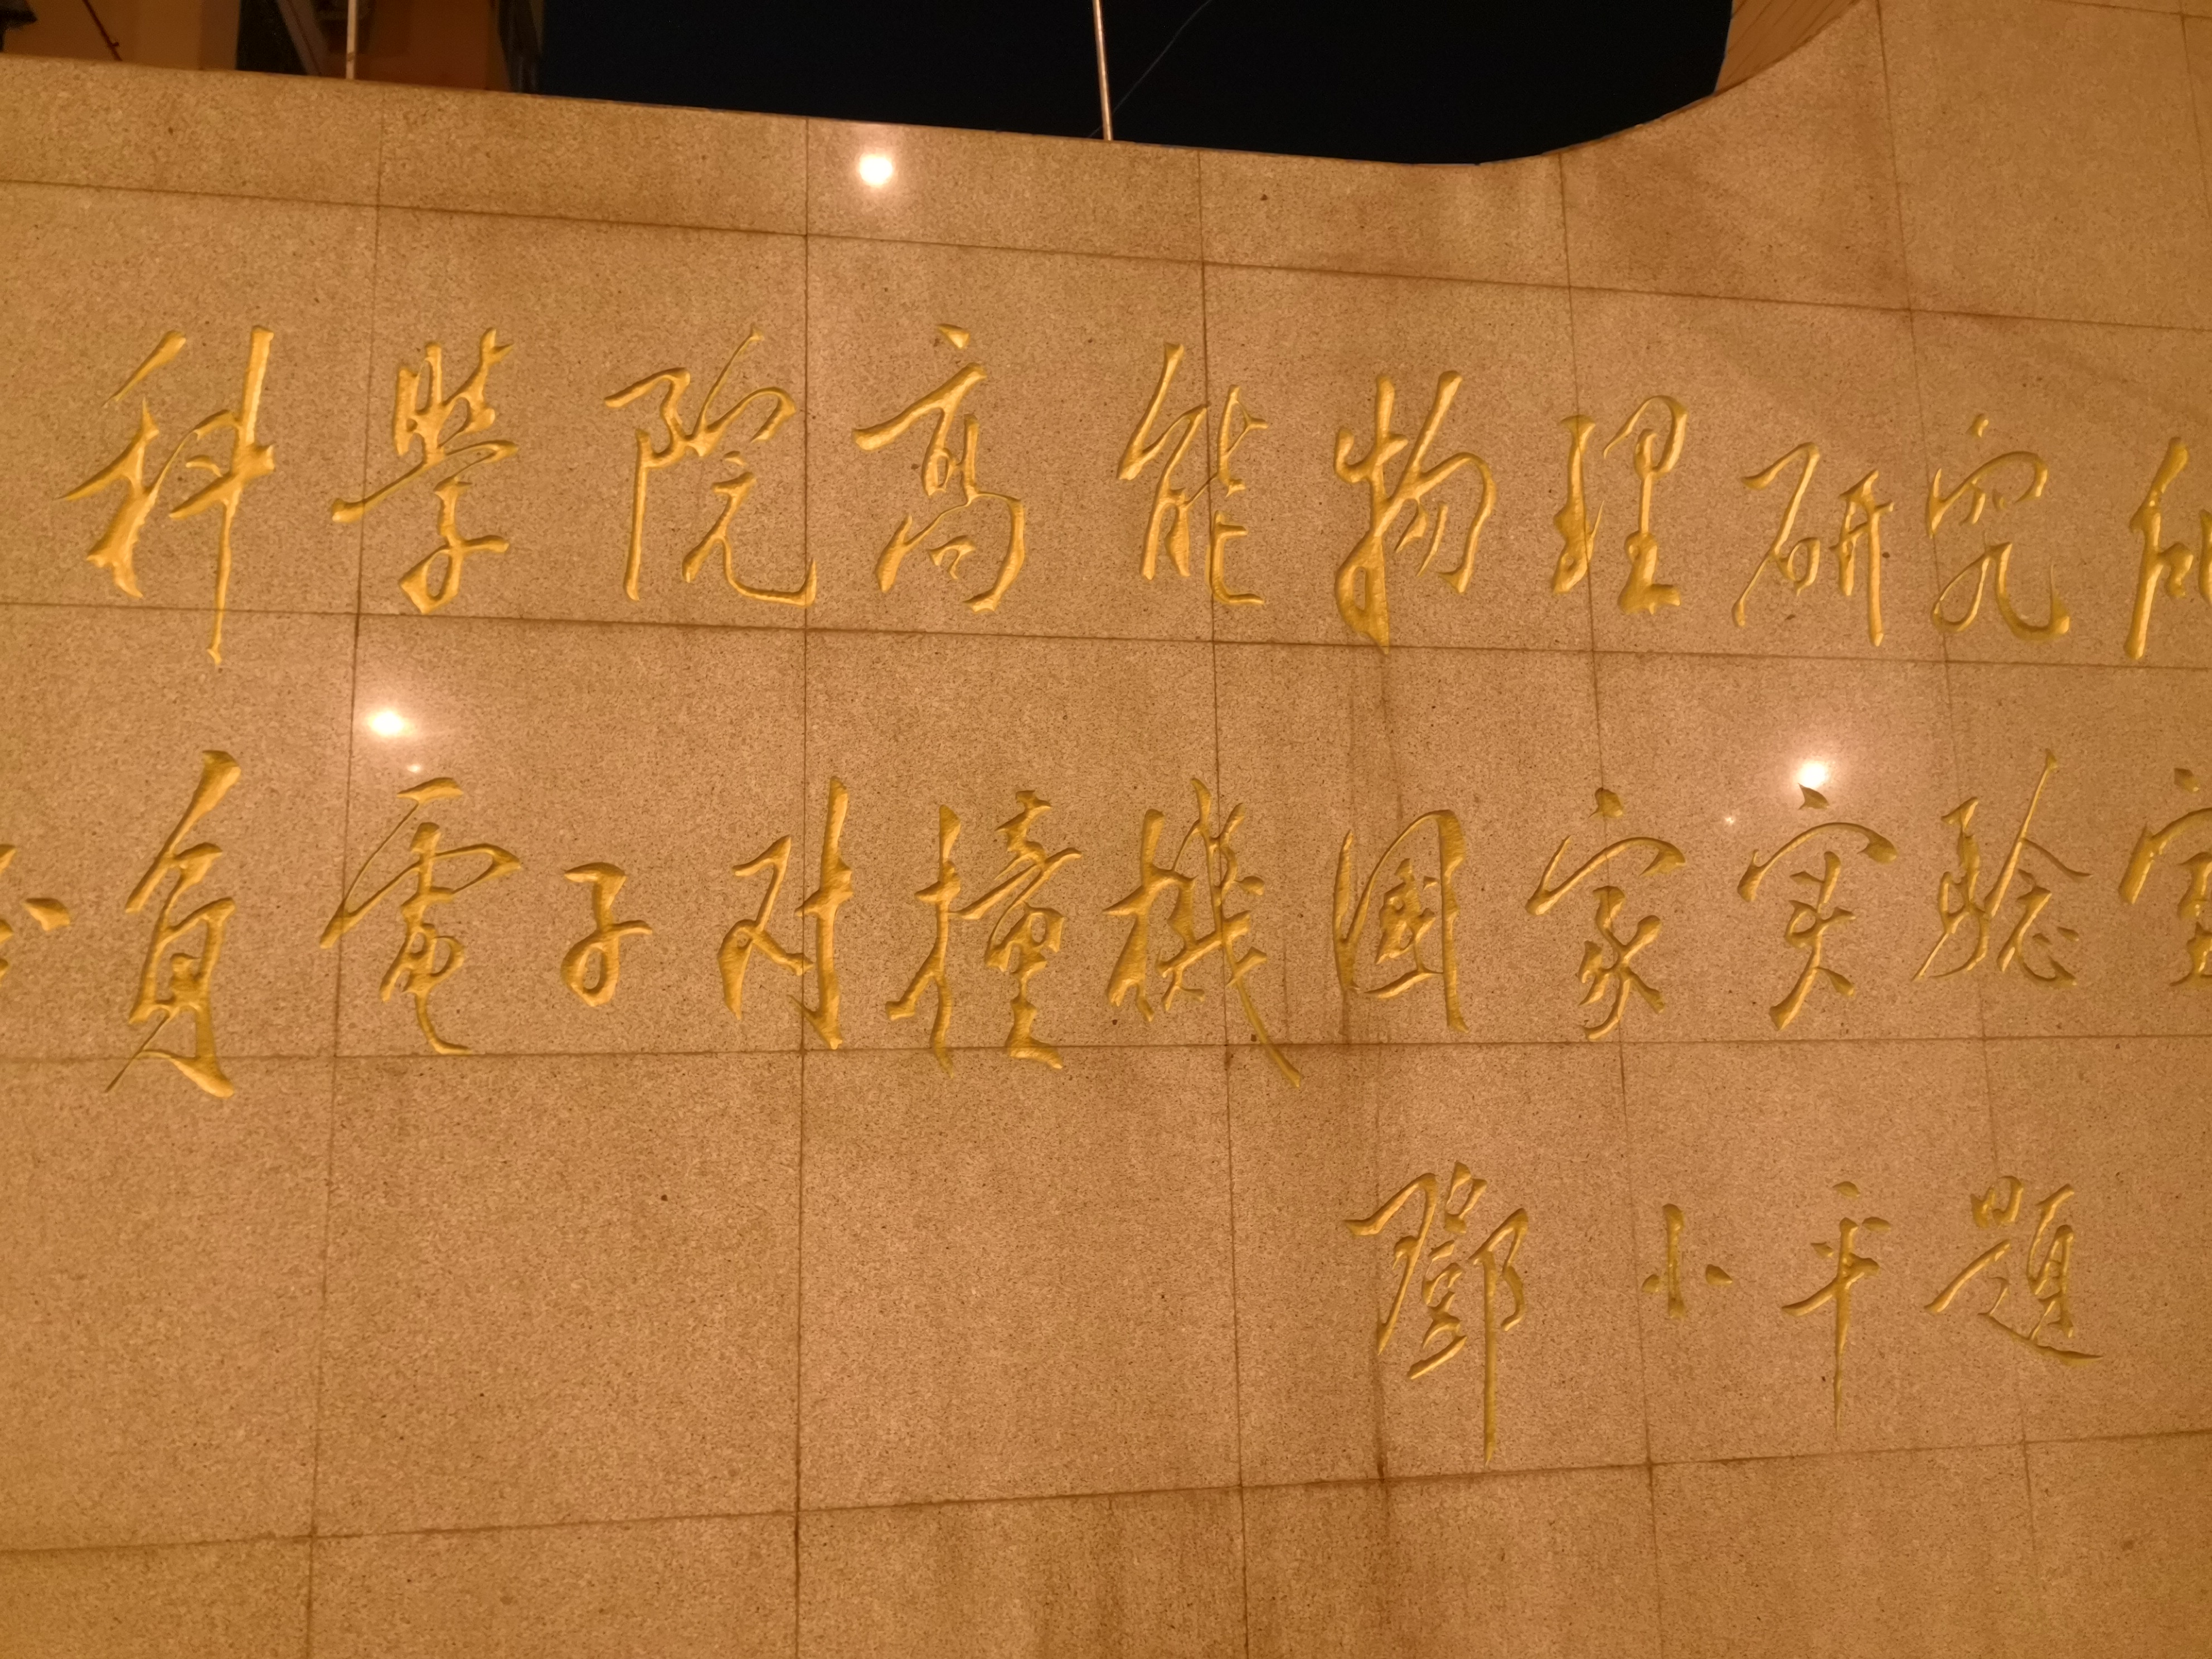 科學院高能物理研究所
負電子对撞機國家实验室
鄧小平題